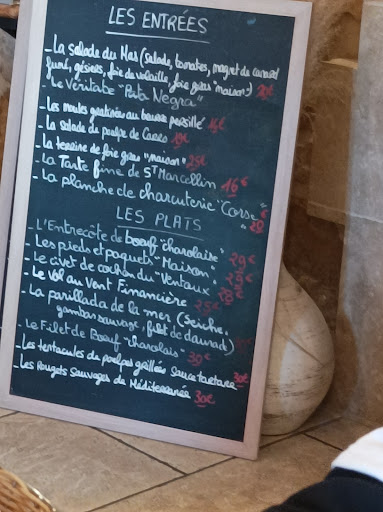 LES ENTRÉES
- La salade du Mas (salade, tomates, magret de canard
fumé, gésiers, foie de volaille, foie gras "maison")
Le Véritable "Pata Negra"
- Les moules gratinées au beurre persillé
- La salade de poulpe de Casso
- La terrine de foie gras "maison" 25€
- La Tarte fine de St Marcellin 16€
- La planche de charcuterie "Corse"
LES PLATS
- L'Entrecôte de boeuf "charolaise" 29€
- Les pieds et paquets "Maison"
- Le civet de cochon du "Ventoux"
- Le vol au Vent Financière
- La parillada de la mer (Seiche,
gambas sauvage, filet de daurad)
- Le Filet de Boeuf "charolais" 39€
- Les tentacules de poulpes grillées sauce tartare 30€
- Les Rougets Sauvages de Méditerranée 30€